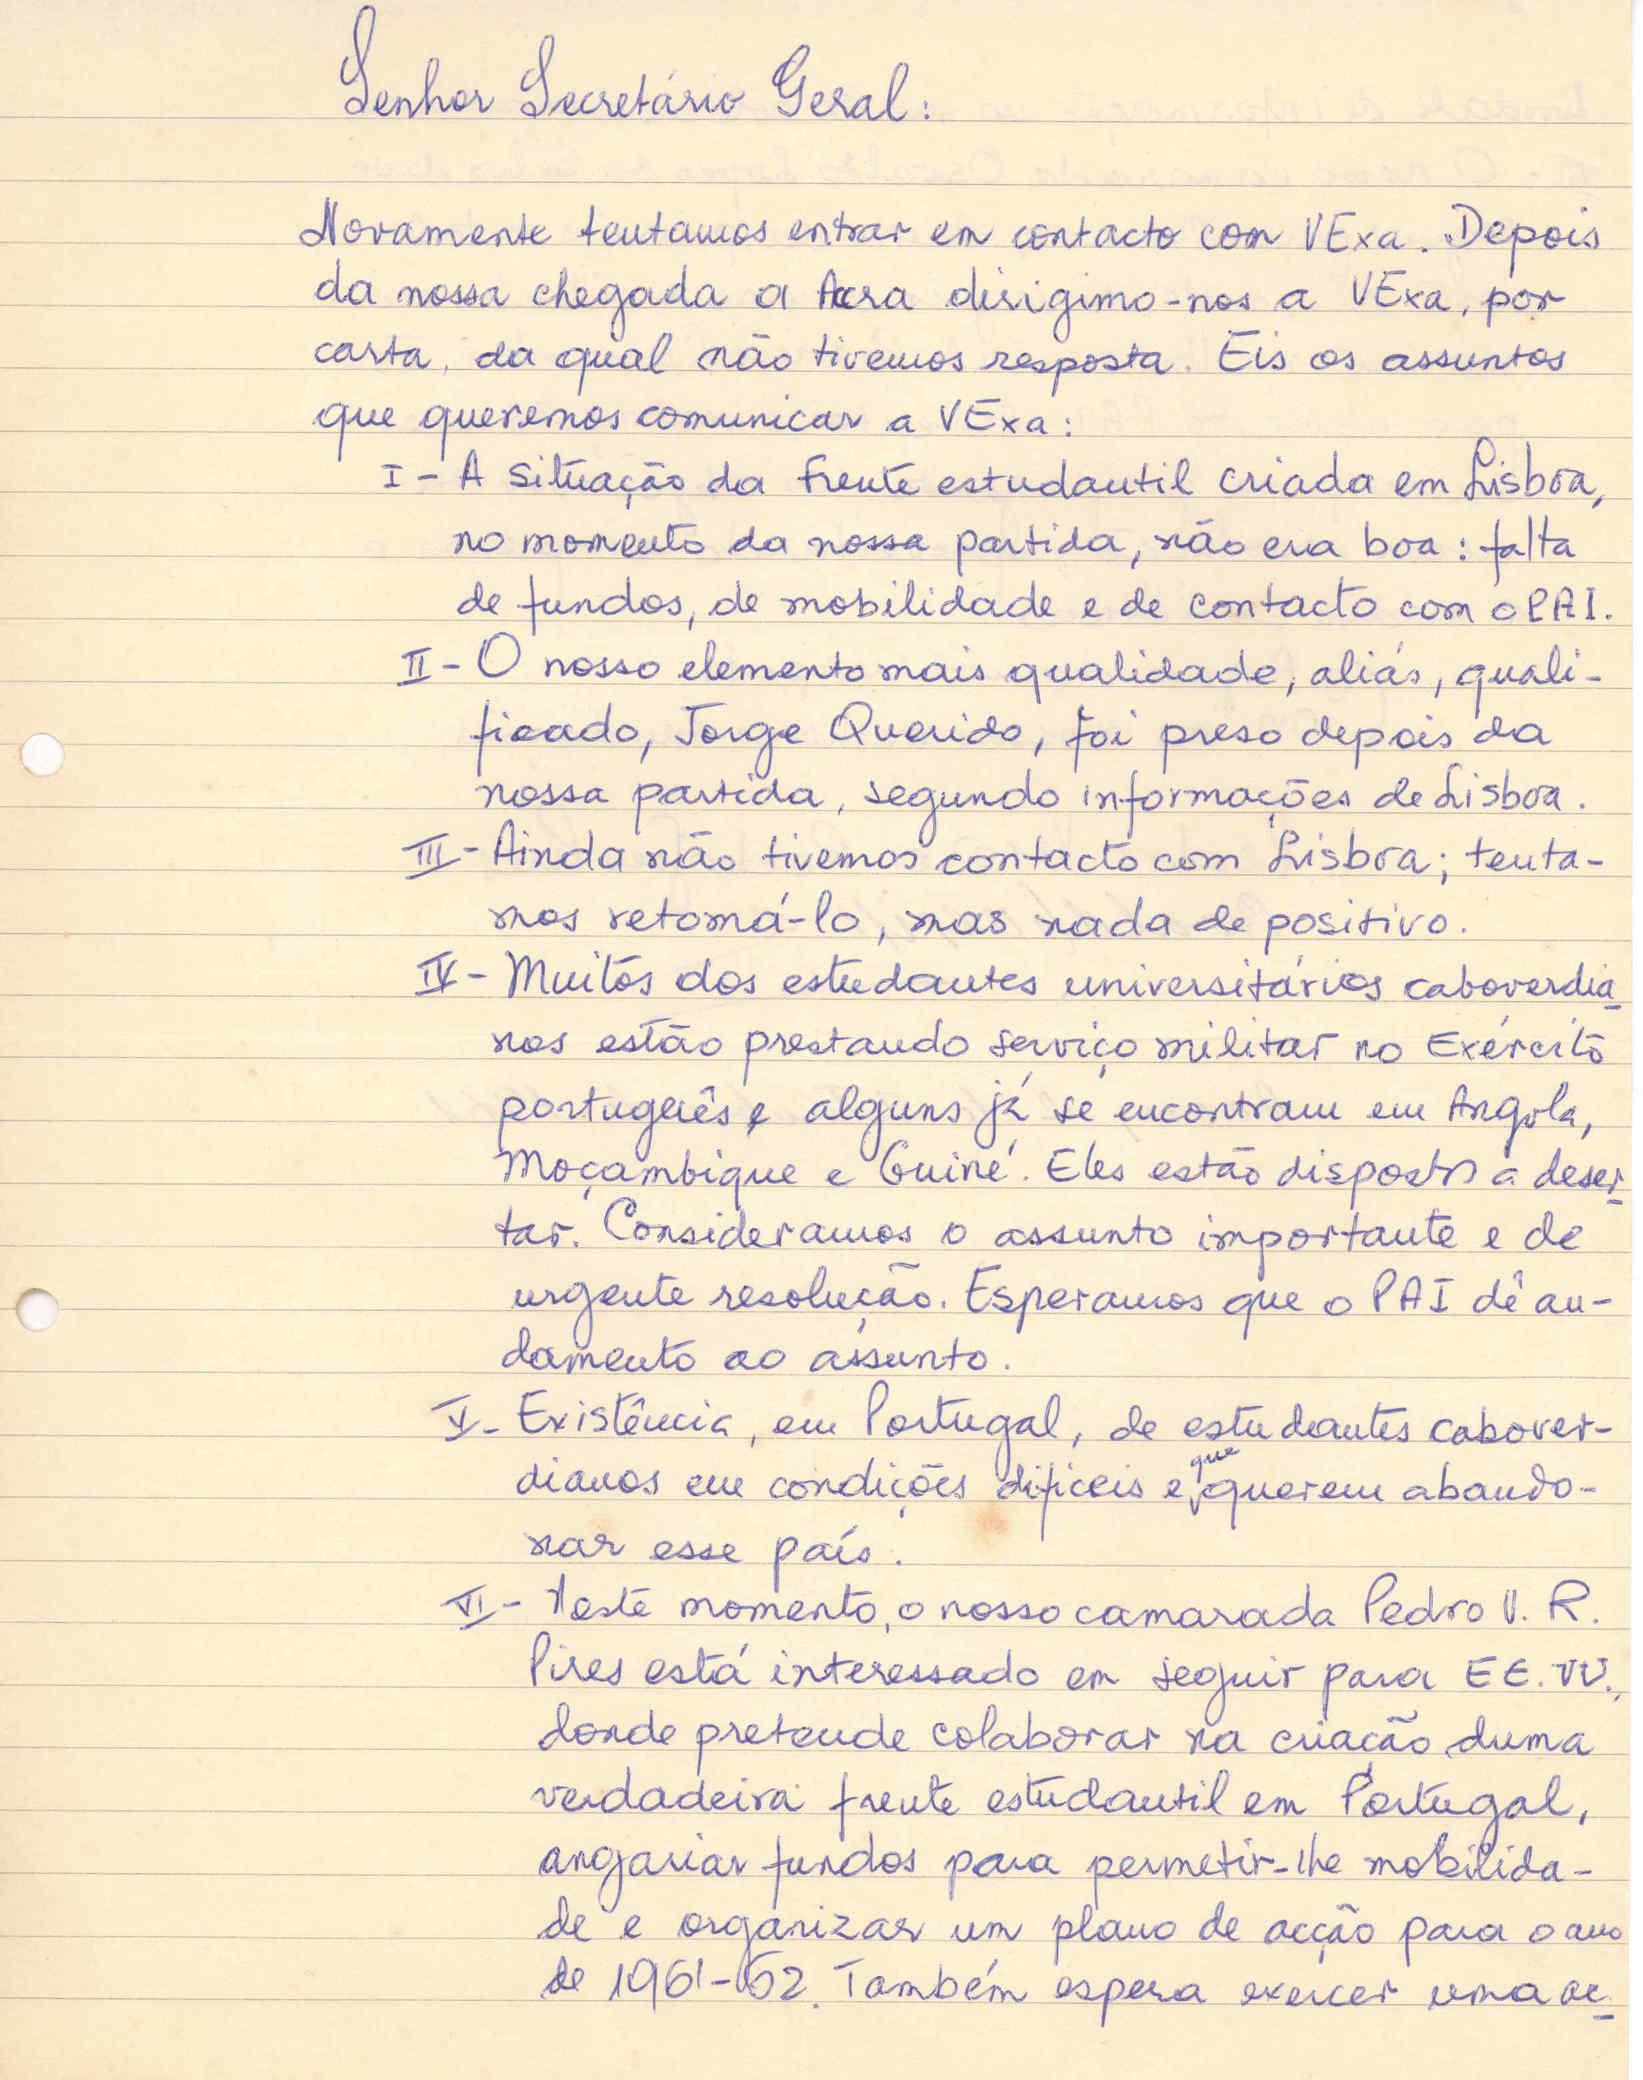 Senhor Secretário Geral:
Novamente tentamos entrar em contacto com VExa. Depois
da nossa chegada a Accra dirigimo-nos a VExa, por
carta, da qual não tivemos resposta. Eis os assuntos
que queremos comunicar a VExa:
I - A situação da Frente estudantil criada em Lisboa,
no momento da nossa partida, não era boa: falta
de fundos, de mobilidade e de contacto com o PAI.
II - O nosso elemento mais qualidade, aliás, quali-
ficado, Jorge Querido, foi preso depois da
nossa partida, segundo informações de Lisboa.
III - Ainda não tivemos contacto com Lisboa; tenta-
mos retomá-lo, mas nada de positivo.
IV - Muitos dos estudantes universitários caboverdia-
nos estão prestando serviço militar no Exército
português e alguns já se encontram em Angola,
Moçambique e Guiné. Eles estão dispostos a deser-
tar. Consideramos o assunto importante e de
urgente resolução. Esperamos que o PAI dê an-
damento ao assunto.
V - Existência, em Portugal, de estudantes cabover-
dianos em condições dificeis e que querem abando-
nar esse país.
VI - Neste momento, o nosso camarada Pedro V. R.
Pires está interessado em seguir para EE. UU.,
donde pretende colaborar na criação duma
verdadeira frente estudantil em Portugal,
angariar fundos para permetir-lhe mobilida-
de e organizar um plano de acção para o ano
de 1961-62. Também espera exercer uma ac-